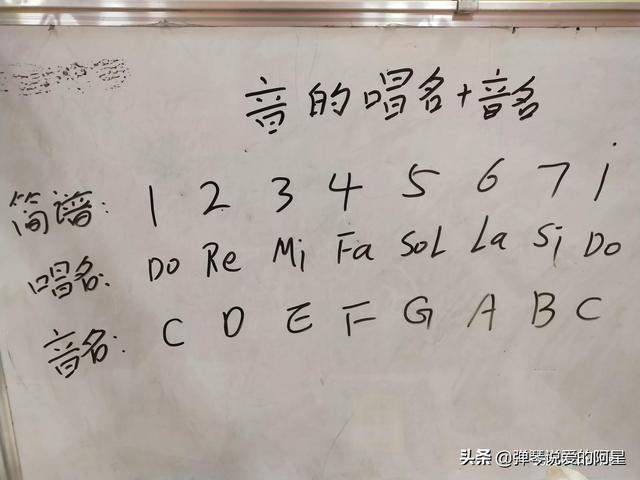 音的唱名+音名
简谱: 1 2 3 4 5 6 7 i
唱名: Do Re Mi Fa SoL La Si Do
音名: C D E F G A B C
头条 @弹琴说爱的阿星